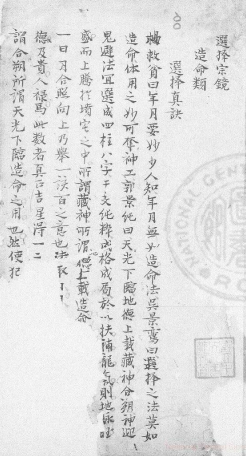 選擇宗鏡
造命類
選擇真訣
楊救貧曰年月要妙少人知年月無如造命法吳景鸞曰選擇之法莫如
造命體用之妙可奪神工郭景純曰天光下臨地德上載藏神合朔神迎
鬼避法宜選成四柱八字干支純粹成格成局於以扶補龍氣則地脈
盛而上騰於墳宅之中所謂藏神所謂地德上載造命
一曰月合照向上乃舉一該百之意也
德及貴人祿馬此數者真吉星得一二
謂合朔所謂天光下臨造命之用也然使犯